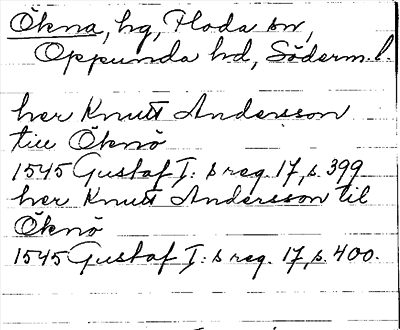 Ökna, hg, Floda sn,
Oppunda hd, Söderm.l.
her Knutt Andersson
till Öknö
1545 Gustaf I: s reg. 17, s. 399
her Knutt Andersson til
Öknö
1545 Gustaf I: s reg. 17, s. 400.